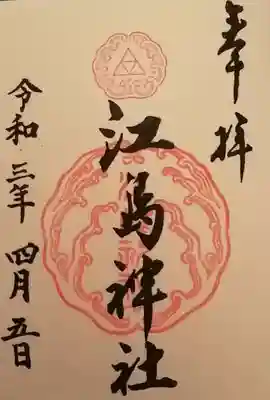 奉拝
江島神社
令和三年四月五日